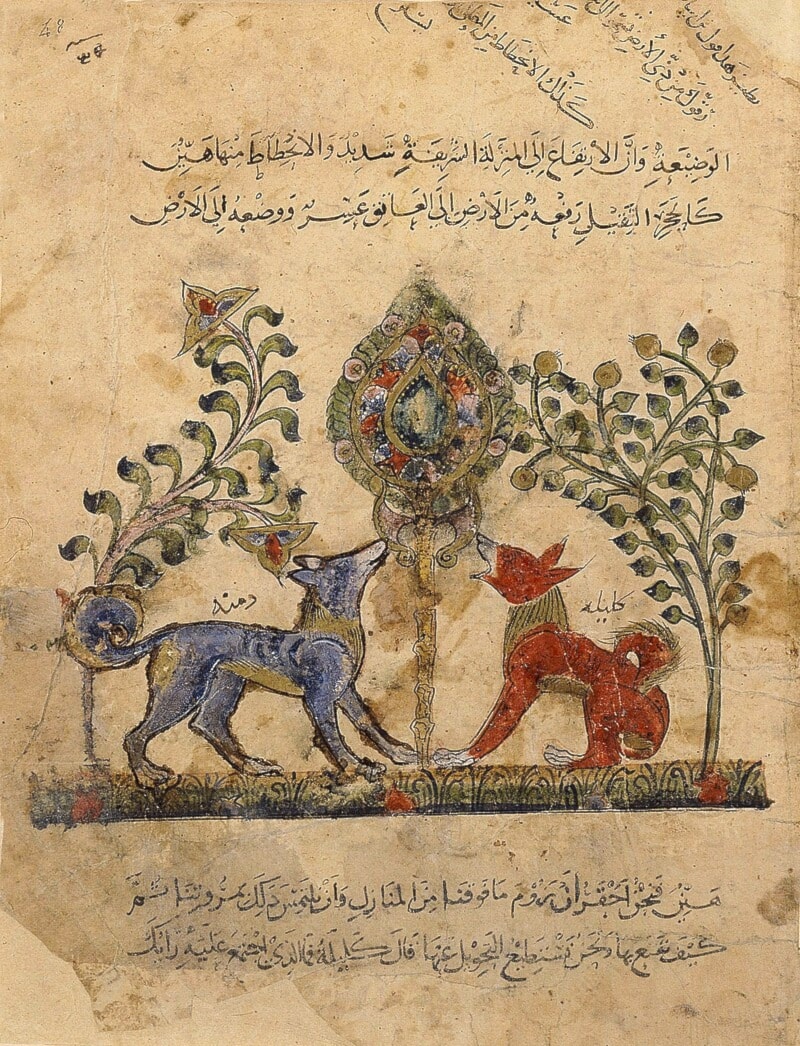 48
كذلك الانحطاط من
الوَضِيعَةِ وَانَّ الارتِفَاعَ إلَى المَنْزِلَةِ الشَّرِيفَةِ شَدِيدٌ وَالانْحِطَاطَ مِنْهَا هَيِّنٌ
كَالحَجَرِ الثَّقِيلِ رَفْعُهُ مِنَ الارْضِ الَى العَاتِقِ عَسِرٌ وَوَضْعُهُ إلَى الارْضِ
دمنه
كليله
هَيِّنٌ فَنَحْنُ احَقُّ انْ نَرُومَ مَا فَوْقَنَا مِنَ المَنَازِلِ وَانْ نَلْتَمِسَ ذَلِكَ بِمُرُوتِنَا ثُمَّ
كَيْفَ نَقْنَعُ بِهَا وَنَحْنُ نَسْتَطِيعُ التَّحْوِيلَ عَنْهَا قَالَ كَلِيلَةُ فَمَا الَّذِي اجْتَمَعَ عَلَيْهِ رَايُكَ